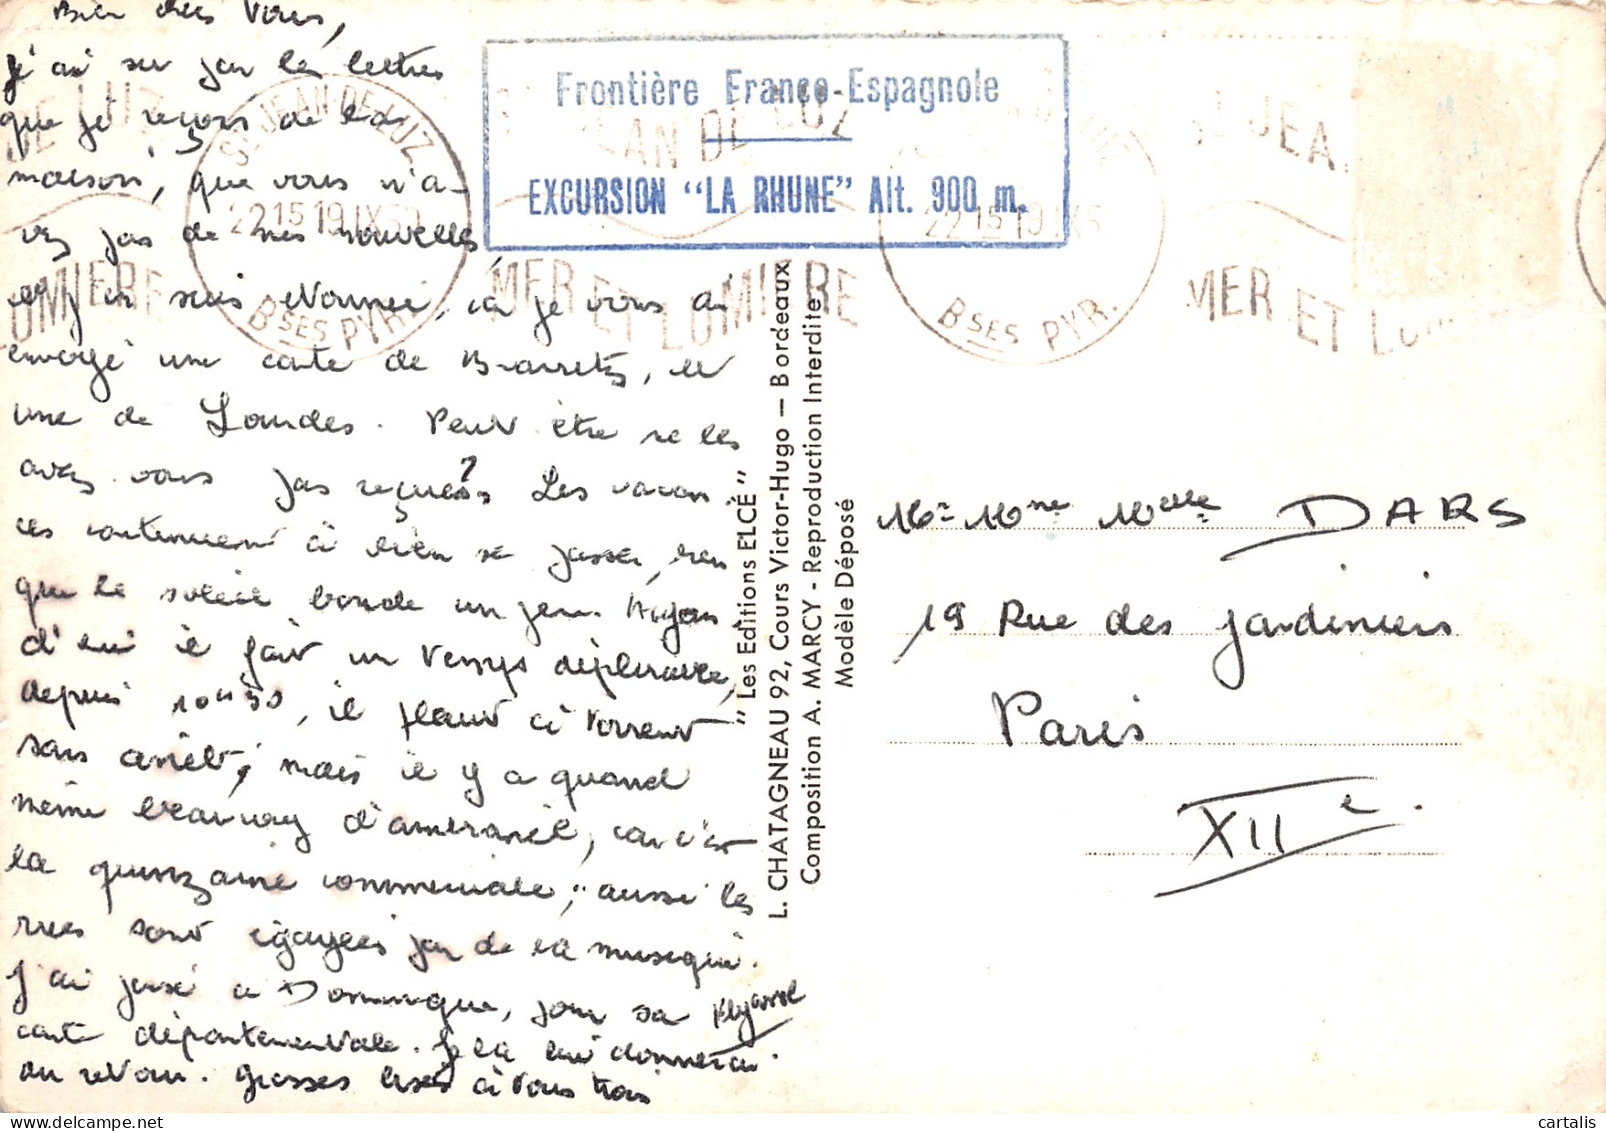 Bien chers Vous,
j'ai su par les lettres
que je reçois de la
maison, que vous n'a-
vez pas de mes nouvelles,
et j'en suis étonnée, car je vous ai
envoyé une carte de Biarritz, et
une de Lourdes. Peut être ne les
avez vous pas reçues? Les vacan
ces continuent à bien se passer, bien
que le soleil boude un peu. Aujour
d'hui il fait un temps déplorable,
depuis 10H30, il pleut à torrent
sans arrêt; mais il y a quand
même beaucoup d'animation, car c'est
la quinzaine commerciale; aussi les
rues sont égayées par de la musique.
J'ai pensé à Dominique, pour sa
carte départementale. Je la lui donnerai
au retour. Grosses bises à vous trois
ST JEAN DE LUZ
2215 19 IX 5
BSES PYR.
DE LUZ
LUMIERE
Frontière France-Espagnole
EXCURSION "LA RHUNE" Alt. 900 m.
JEAN DE LUZ
MER ET LUMIERE
2215 19 IX 5
BSES PYR.
JEA
MER ET LUM
"Les Editions ELCÉ"
L. CHATAGNEAU 92, Cours Victor-Hugo — Bordeaux
Composition A. MARCY - Reproduction Interdite
Modèle Déposé
Mr Mme Melle DARS
19 Rue des Jardiniers
Paris
XIIe.
cartalis